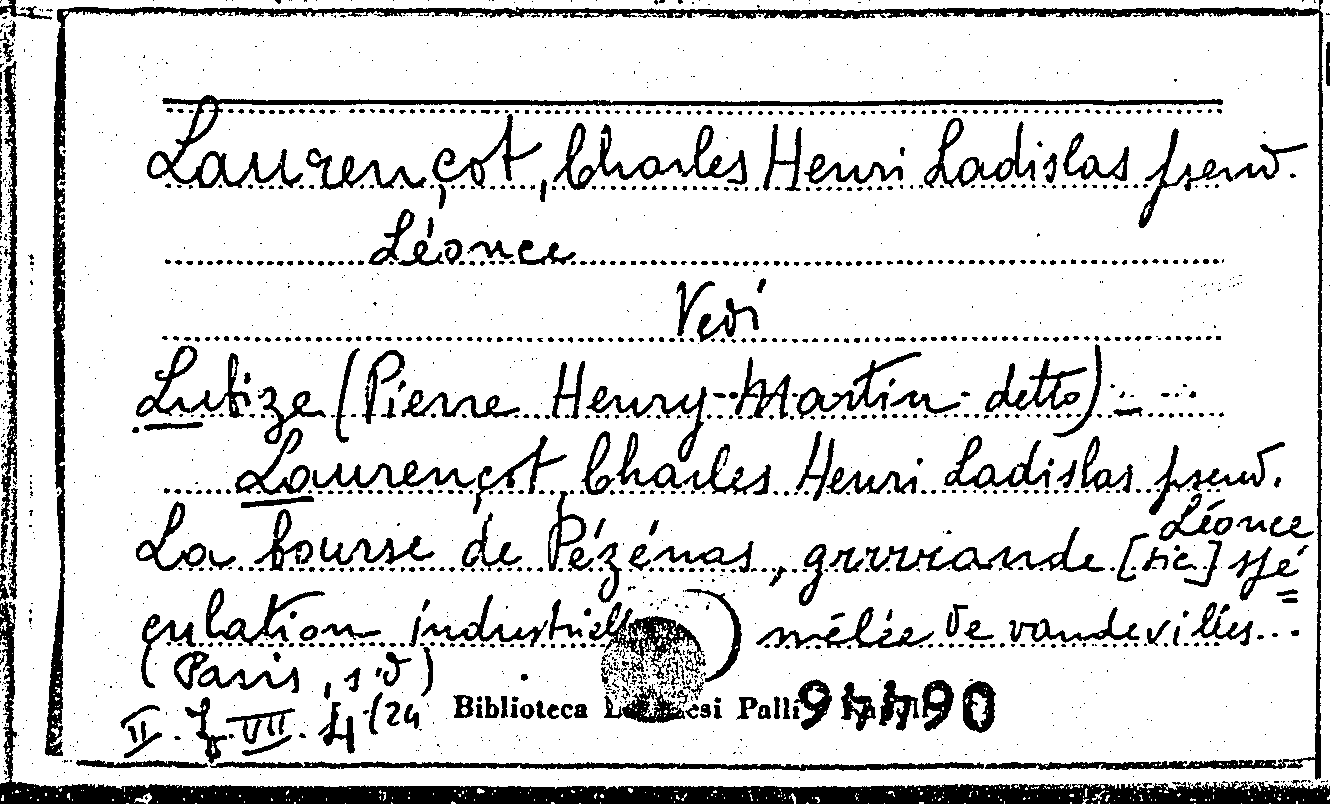 Laurençot, Charles Henri Ladislas pseud.
Léonce
Vedi
Lubize (Pierre Henry Martin detto) -
Laurençot, Charles Henri Ladislas pseud.
Léonce
La bourse de Pézénas, grrrrande [sic] spé=
culation industrielle mêlée de vaudevilles...
(Paris, s.d)
II. VII. 4 /24
Biblioteca Lucchesi Palli 94490